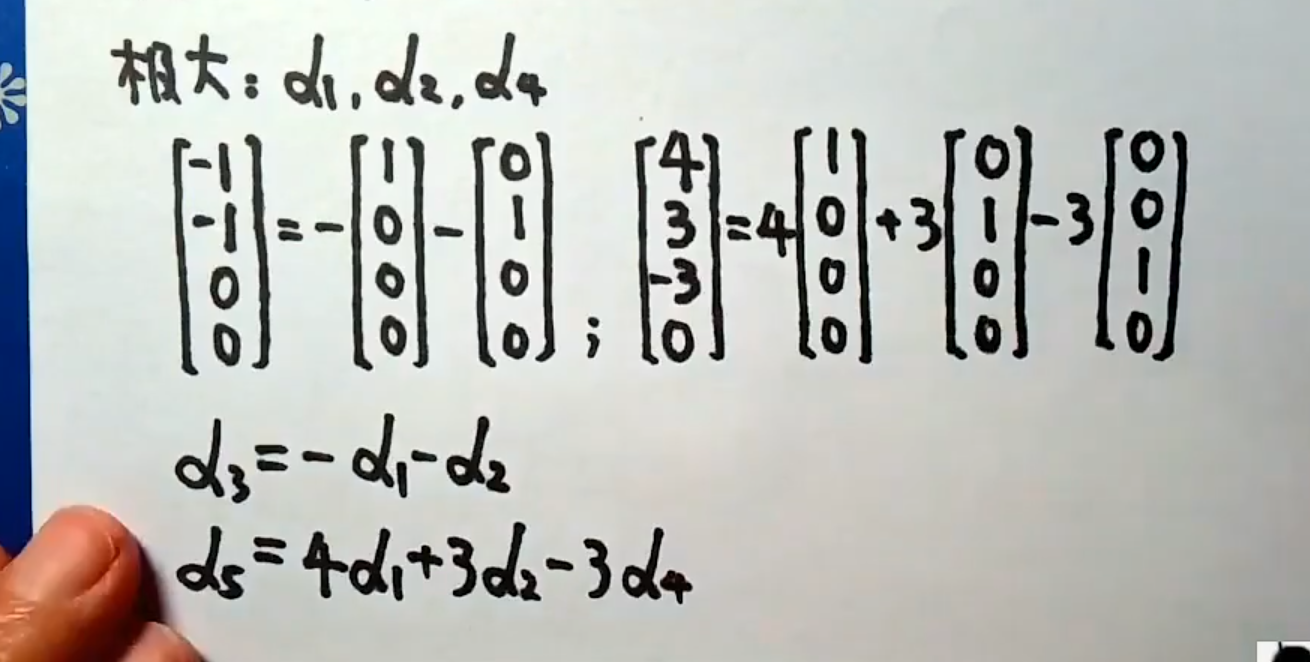 极大：α₁, α₂, α₄
[-1 -1 0 0] = -[1 0 0 0] - [0 1 0 0] ; [4 3 -3 0] = 4[1 0 0 0] + 3[0 1 0 0] - 3[0 0 1 0]
α₃ = -α₁ - α₂
α₅ = 4α₁ + 3α₂ - 3α₄